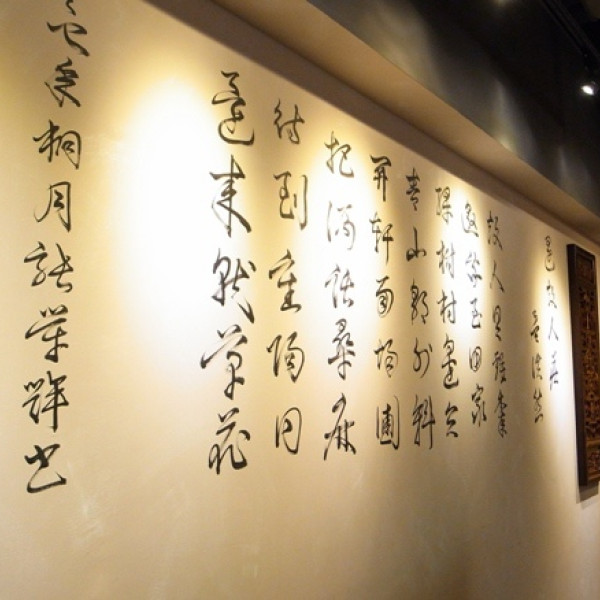 過故人莊
孟浩然
故人具雞黍
邀我至田家
綠樹村邊合
青山郭外斜
開軒面場圃
把酒話桑麻
待到重陽日
還來就菊花
桐月 榮輝書